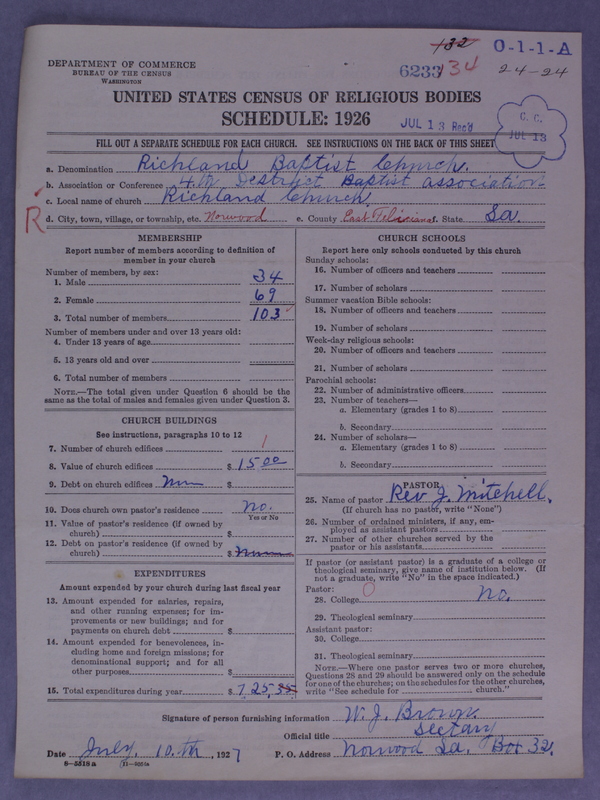 132
0-1-1-A
DEPARTMENT OF COMMERCE
BUREAU OF THE CENSUS
WASHINGTON
6233 34
24-24
UNITED STATES CENSUS OF RELIGIOUS BODIES
SCHEDULE: 1926
JUL 13 Rec'd
C. C.
JUL 13
FILL OUT A SEPARATE SCHEDULE FOR EACH CHURCH. SEE INSTRUCTIONS ON THE BACK OF THIS SHEET
a. Denomination Richland Baptist Church.
b. Association or Conference 4.th District Baptist association
c. Local name of church Richland Church.
R
d. City, town, village, or township, etc. Norwood e. County East Feliciana f. State La.
MEMBERSHIP
Report number of members according to definition of
member in your church
Number of members, by sex:
1. Male 34
2. Female 69
3. Total number of members 103
Number of members under and over 13 years old:
4. Under 13 years of age
5. 13 years old and over
6. Total number of members
NOTE.—The total given under Question 6 should be
same as the total of males and females given under Question 3.
CHURCH BUILDINGS
See instructions, paragraphs 10 to 12
7. Number of church edifices 1
8. Value of church edifices $1500
9. Debt on church edifices $
10. Does church own pastor's residence No.
Yes or No
11. Value of pastor's residence (if owned by
church) $
12. Debt on pastor's residence (if owned by
church) $
EXPENDITURES
Amount expended by your church during last fiscal year
13. Amount expended for salaries, repairs,
and other running expenses; for im-
provements or new buildings; and for
payments on church debt $
14. Amount expended for benevolences, in-
cluding home and foreign missions; for
denominational support; and for all
other purposes $
15. Total expenditures during year $ 725,35
CHURCH SCHOOLS
Report here only schools conducted by this church
Sunday schools:
16. Number of officers and teachers
17. Number of scholars
Summer vacation Bible schools:
18. Number of officers and teachers
19. Number of scholars
Week-day religious schools:
20. Number of officers and teachers
21. Number of scholars
Parochial schools:
22. Number of administrative officers
23. Number of teachers—
a. Elementary (grades 1 to 8)
b. Secondary
24. Number of scholars—
a. Elementary (grades 1 to 8)
b. Secondary
PASTOR
25. Name of pastor Rev J. Mitchell.
(If church has no pastor, write "None")
26. Number of ordained ministers, if any, em-
ployed as assistant pastors
27. Number of other churches served by the
pastor or his assistants
If pastor (or assistant pastor) is a graduate of a college or
theological seminary, give name of institution below. (If
not a graduate, write "No" in the space indicated.)
Pastor:
28. College 0 No.
29. Theological seminary
Assistant pastor:
30. College
31. Theological seminary
NOTE.—Where one pastor serves two or more churches,
Questions 28 and 29 should be answered only on the schedule
for one of the churches; on the schedules for the other churches,
write "See schedule for church."
Signature of person furnishing information W. J. Brown
Official title Sectary
Date July, 10.th, 1927 P. O. Address Norwood La. Box 32.
8-5518 A